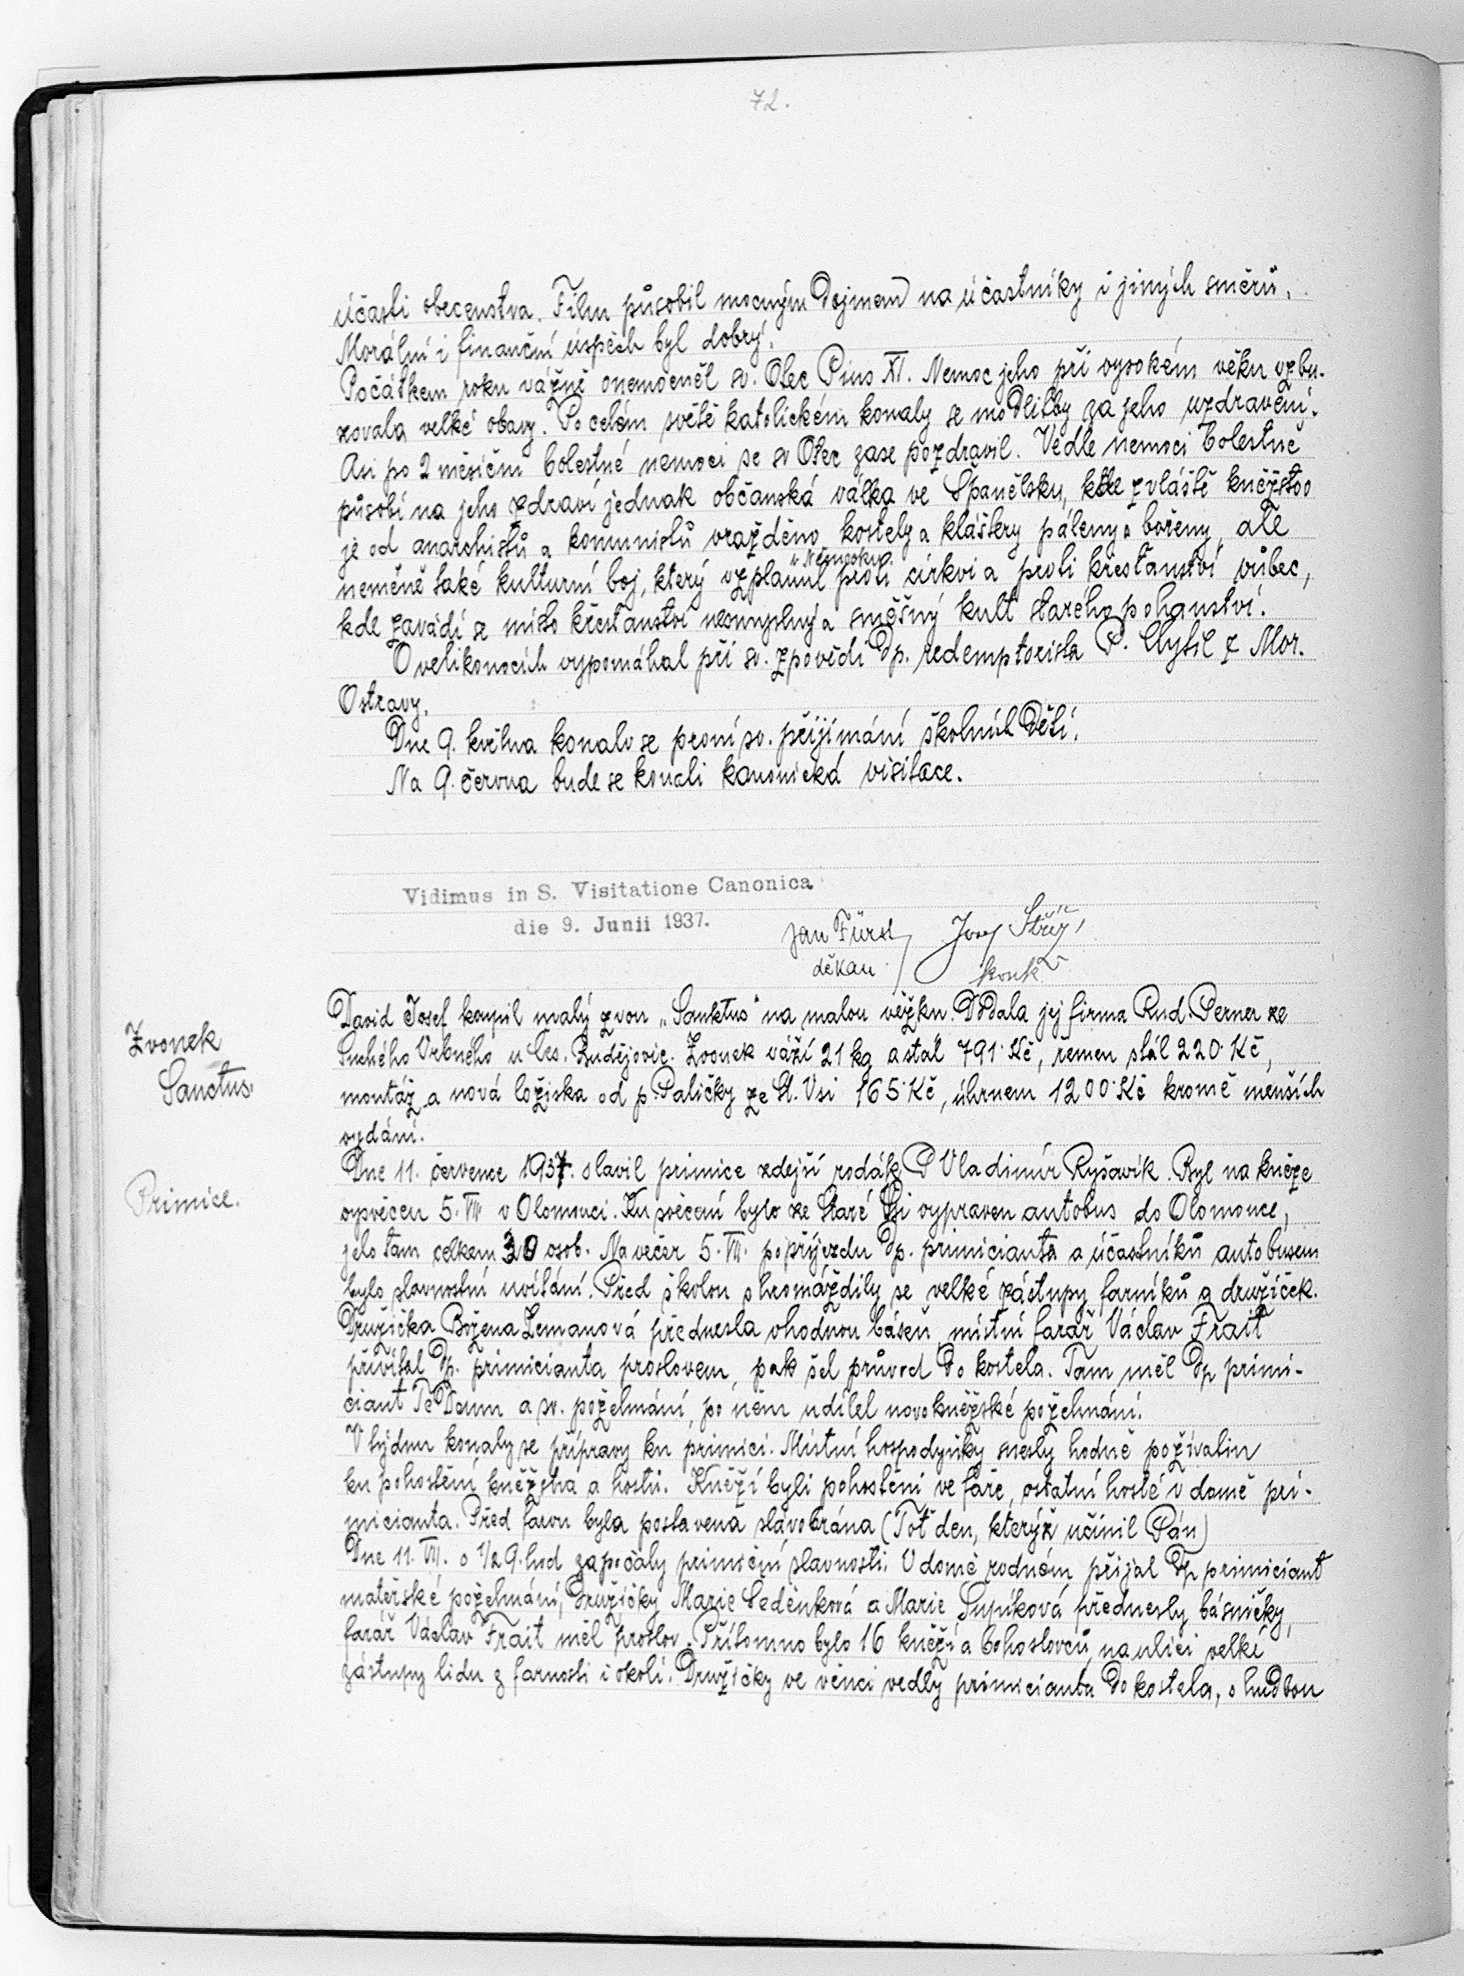 72.
účasti obecenstva. Film působil mocným dojmem na účastníky i jiných směrů.
Morální i finanční úspěch byl dobrý.
Počátkem roku vážně onemocněl sv. Otec Pius XI. Nemoc jeho při vysokém věku vzbu-
zovala velké obavy. Po celém světě katolickém konaly se modlitby za jeho uzdravení.
Asi po 2 měsíční bolestné nemoci se sv Otec zase pozdravil. Vedle nemoci bolestně
působí na jeho zdraví jednak občanská válka ve Španělsku, kde zvláště kněžstvo
je od anarchistů a komunistů vražděno, kostely a kláštery páleny a bořeny, ale
v Německu
neméně také kulturní boj, který vzplanul proti církvi a proti křesťanství vůbec,
kde zavádí se místo křesťanství nesmyslný a směšný kult starého pohanství.
O velikonocích vypomáhal při sv. zpovědi dp. redemptorista P. Chytil z Mor.
Ostravy.
Dne 9. května konalo se první sv. přijímání školních dětí.
Na 9. června bude se konati kanonická visitace.
Vidimus in S. Visitatione Canonica
die 9. Junii 1937.
Jan Fürst
děkan
Josef
Zvonek
Sanctus.
David Josef koupil malý zvon „Sanktus" na malou věžku. Dodala jej firma Rud. Perner ze
Suchého Vrbného u Čes. Budějovic. Zvonek váží 21 kg a stál 791 Kč, řemen stál 220 Kč,
montáž a nová ložiska od p. Paličky ze St. Vsi 165 Kč, úhrnem 1200 Kč kromě menších
vydání.
Primice.
Dne 11. července 1937. slavil primice zdejší rodák P Vladimír Ryšavík. Byl na kněze
vysvěcen 5. VII. v Olomouci. Ku svěcení bylo ze Staré Vsi vypraven autobus do Olomouce,
jelo tam celkem 30 osob. Na večer 5. VII. po příjezdu dp. primicianta a účastníků autobusem
bylo slavnostní uvítání. Před školou shromáždily se velké zástupy farníků a družiček.
Družička Božena Zemanová přednesla vhodnou báseň, místní farář Václav Frait
přivítal dp. primicianta proslovem, pak šel průvod do kostela. Tam měl dp primi-
ciant Te Deum a sv. požehnání, po něm udílel novokněžské požehnání.
V týdnu konaly se přípravy ku primici. Místní hospodyňky snesly hodně poživatin
ku pohostění kněžstva a hostí. Kněží byli pohostěni ve faře, ostatní hosté v domě pri-
micianta. Před farou byla postavena slavobrána (Toť den, kterýž učinil Pán)
Dne 11. VII. o 1/2 9. hod započaly primiční slavnosti. V domě rodném přijal dp primiciant
mateřské požehnání, družičky Marie Ceděnková a Marie Supíková přednesly básničky,
farář Václav Frait měl proslov. Přítomno bylo 16 kněží a bohoslovců, na ulici velké
zástupy lidu z farnosti i okolí. Družičky ve věnci vedly primicianta do kostela, s hudbou